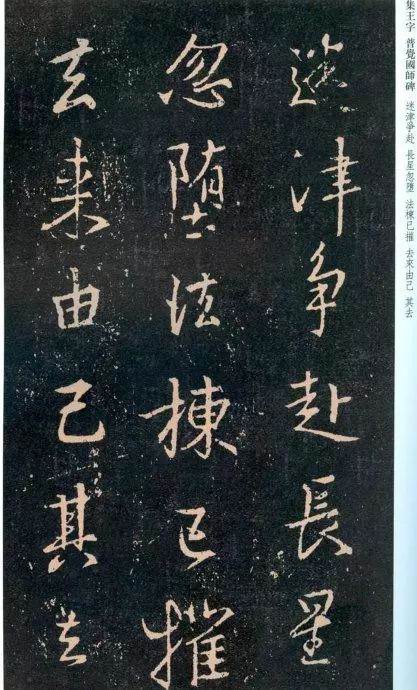 集王字 普覺國師碑 迷津爭赴 長星忽墮 法棟已摧 去來由己 其去
迷津爭赴長星
忽墮法棟已摧
去来由己其去